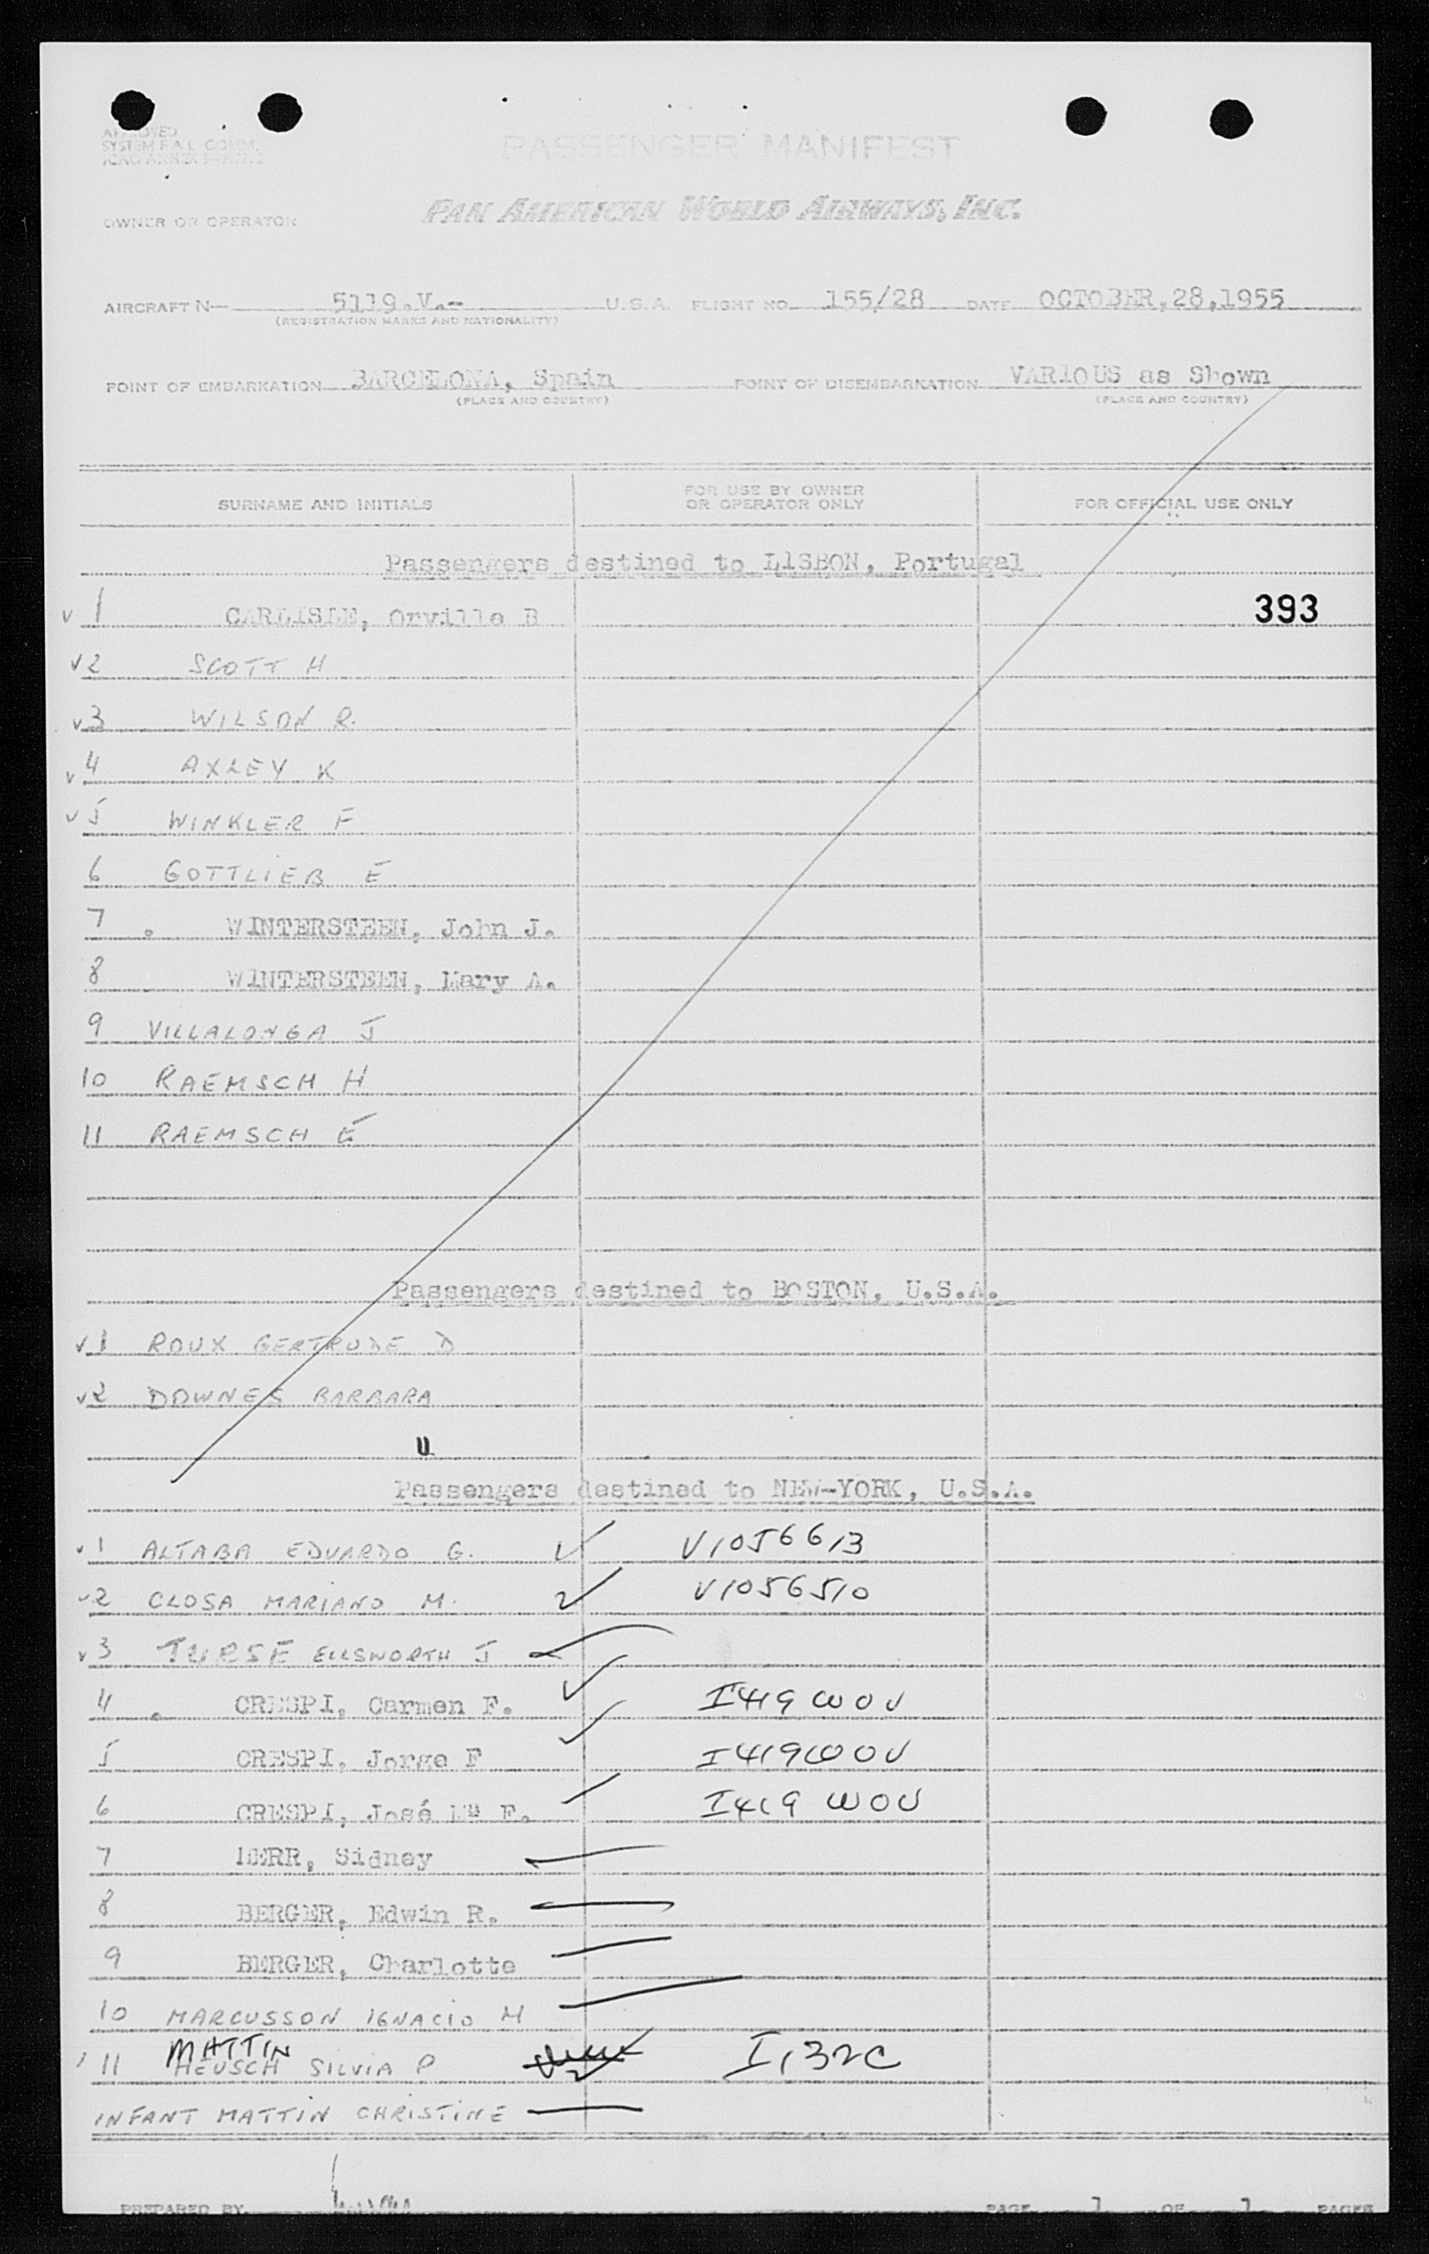 APPROVED
SYSTEM F.A.L. COMM.
PASSENGER MANIFEST
OWNER OR OPERATOR PAN AMERICAN WORLD AIRWAYS, INC.
AIRCRAFT N— 5119.V.- U.S.A. FLIGHT NO. 155/28 DATE OCTOBER,28,1955
(REGISTRATION MARKS AND NATIONALITY)
POINT OF EMBARKATION BARCELONA, Spain POINT OF DISEMBARKATION VARIOUS as Shown
(PLACE AND COUNTRY) (PLACE AND COUNTRY)
SURNAME AND INITIALS FOR USE BY OWNER OR OPERATOR ONLY FOR OFFICIAL USE ONLY
Passengers destined to LISBON, Portugal
v 1 CARLISLE, Orville B 393
v 2 SCOTT H
v 3 WILSON R.
v 4 AXLEY K
v 5 WINKLER F
6 GOTTLIEB E
7 . WINTERSTEEN, John J.
8 . WINTERSTEEN, Mary A.
9 VILLALONGA J
10 RAEMSCH H
11 RAEMSCH E
Passengers destined to BOSTON, U.S.A.
v 1 ROUX GERTRUDE D
v 2 DOWNES BARBARA
U
Passengers destined to NEW-YORK, U.S.A.
v 1 ALTABA EDUARDO G. V1056613
v 2 CLOSA MARIANO M. V1056510
v 3 TURSE ELLSWORTH J
4 . CRESPI, Carmen F. I419 WOV
5 CRESPI, Jorge F I419WOV
6 CRESPI, José Mª F. I419 WOV
7 Sidney
8 BERGER, Edwin R.
9 BERGER, Charlotte
10 MARCUSSON IGNACIO M
MATTIN
11 HEUSCH SILVIA P I132C
INFANT MATTIN CHRISTINE
PREPARED BY PAGE 1 OF 1 PAGES